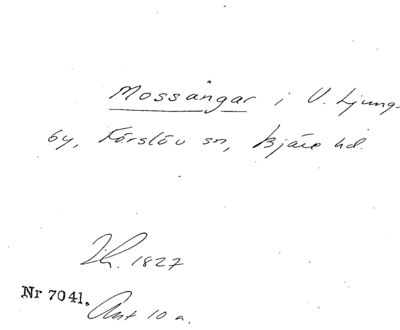 Mossångar i V. Ljung-
by, Förslöv sn, Bjäre hd.
1827
Nr 7041.
Ant 10 a.